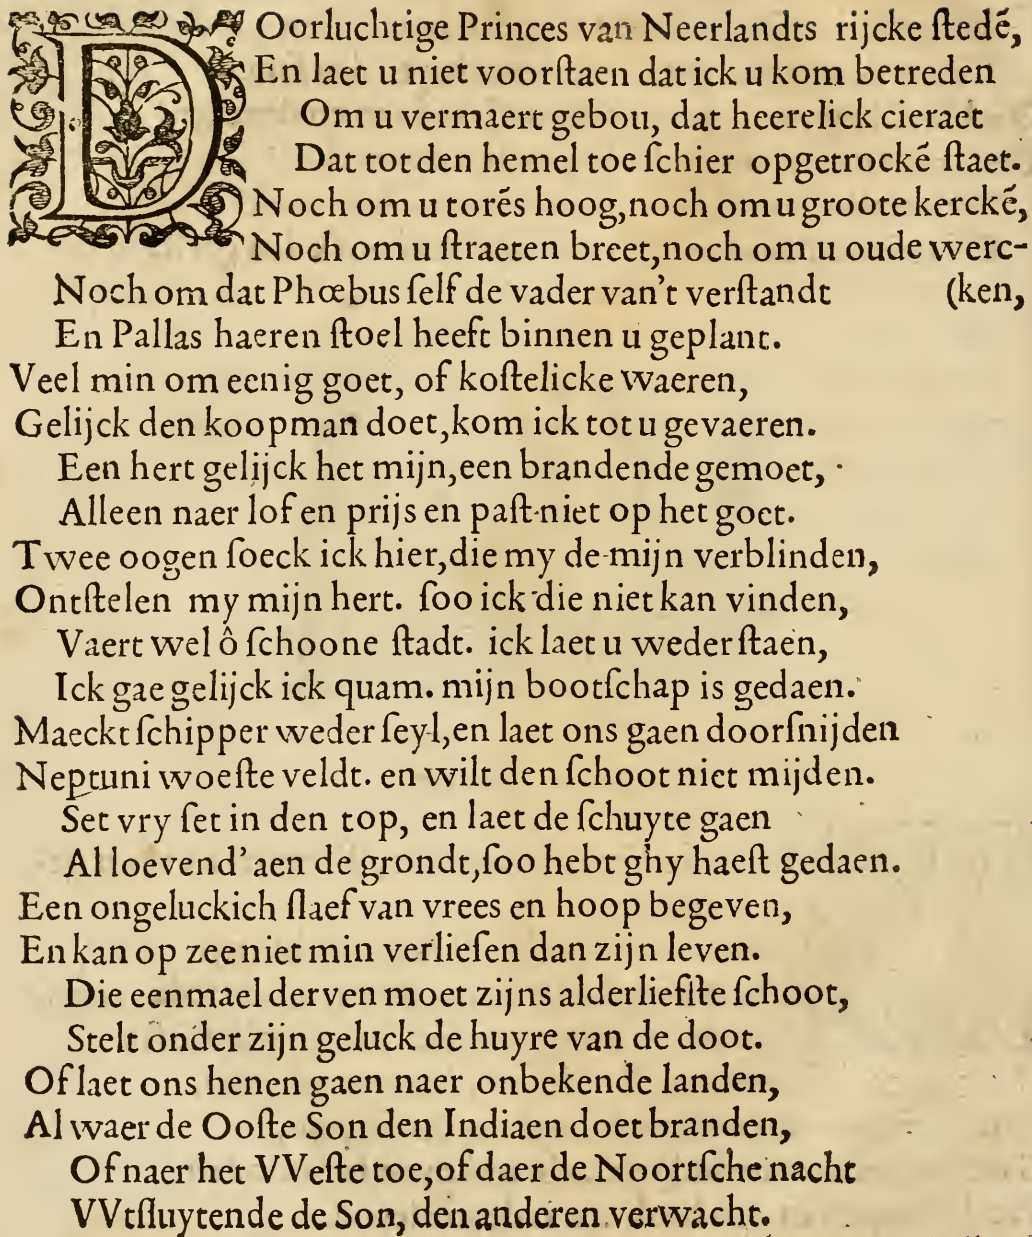 DOorluchtige Princes van Neerlandts rijcke ſtedẽ,
En laet u niet voorſtaen dat ick u kom betreden
Om u vermaert gebou, dat heerelick cieraet
Dat tot den hemel toe ſchier opgetrockẽ ſtaet.
Noch om u torẽs hoog, noch om u groote kerckẽ,
Noch om u ſtraeten breet, noch om u oude werc-
Noch om dat Phœbus ſelf de vader van't verſtandt (ken,
En Pallas haeren ſtoel heeft binnen u geplant.
Veel min om eenig goet, of koſtelicke waeren,
Gelijck den koopman doet, kom ick tot u gevaeren.
Een hert gelijck het mijn, een brandende gemoet,
Alleen naer lof en prijs en paſt niet op het goet.
Twee oogen ſoeck ick hier, die my de mijn verblinden,
Ontſtelen my mijn hert. ſoo ick die niet kan vinden,
Vaert wel ô ſchoone ſtadt. ick laet u weder ſtaen,
Ick gae gelijck ick quam. mijn bootſchap is gedaen.
Maeckt ſchipper weder ſeyl, en laet ons gaen doorſnijden
Neptuni woeſte veldt. en wilt den ſchoot niet mijden.
Set vry ſet in den top, en laet de ſchuyte gaen
Al loevend' aen de grondt, ſoo hebt ghy haeſt gedaen.
Een ongeluckich ſlaef van vrees en hoop begeven,
En kan op zee niet min verlieſen dan zijn leven.
Die eenmael derven moet zijns alderliefſte ſchoot,
Stelt onder zijn geluck de huyre van de doot.
Of laet ons henen gaen naer onbekende landen,
Al waer de Ooſte Son den Indiaen doet branden,
Of naer het VVeſte toe, of daer de Noortſche nacht
VVtſluytende de Son, den anderen verwacht.